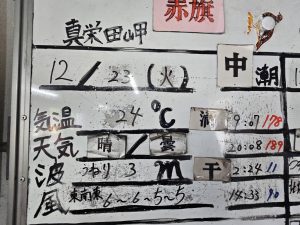 赤旗
真栄田岬
12/23(火) 中潮
気温 24℃ 満 9:07 178
天気 晴/曇 20:08 189
波 うねり 3 m 干 2:24 11
風 東南東 6~6~5~5 14:33 90